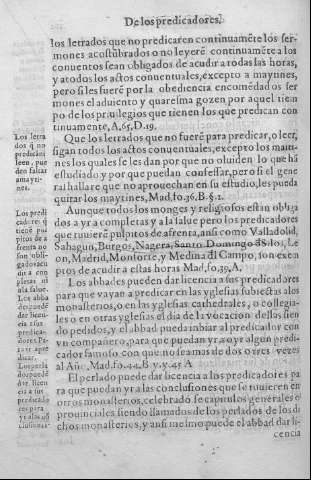 De los predicadores.
los letrados que no predicaren continuamẽte los ser-
mones acostũbrados o no leyerẽ continuamẽte a los
conuentos sean obligados de acudir a todas las horas,
y a todos los actos conuentuales, excepto a maytines,
pero si les fuerẽ por la obediencia encomẽdados ser
mones el aduiento y quaresma gozen por aquel tiem
po de los priuilegios que tienen los que predican con
tinuamente, A, 65, D. 19.
Los letra
dos q̃ no
predican
leen, pue
den faltar
a may ti-
nes.
Que los letrados que no fuerẽ para predicar, o leer,
sigan todos los actos conuentuales, excepto los maiti-
nes los quales se les dan por que no oluiden lo que hã
estudiado y por que puedan confessar, pero si el gene
ral hallare que no aprouechan en su estudio, les pueda
quitar los maytines, Mad, fo. 36. B. §. 2.
Los predi
cadores q̃
tienẽ pul
pitos de a
frenta no
son obli-
gados acu
dir a con
pletas ni
a la salue.
Aunque todos los monges y religiosos estan obliga
dos a yr a completas y a la salue pero los predicadores
que tuuieren pulpitos de afrenta, ansi como Valladolid,
Sahagun, Burgos, Nagera, Santo Domingo
on, Madrid, Monforte, y Medina del Campo, son exen
ptos de acudir a estas horas Mad, fo, 39, A,
Los abba
des puedẽ
dar licen-
cia a sus
predica-
dores Pa-
ra yr a pre
dicar.
Los abbades pueden dar licencia a sus predicadores
para que vayan a predicar en las yglesias subiectas a los
monasterios, o en las yglesias cathedrales, o collegia-
les o en otras yglesias el dia de la vocacion dellas sien
do pedidos, y el abbad pueda inbiar al predicador con
vn compañero, para que puedan yr a oyr algun predi-
cador famoso con que no sea mas de dos o tres vezes
al Año, Mad. fo. 44. B y. y. 45 A
Los perla
dos puedẽ
dar licen
cia a sus
predicado
res para
yr a las cõ
clusiones.
El perlado puede dar licencia a los predicadores pa
ra que puedan yr a las conclusiones que se tuuieren en
otros monasterios, celebrado se capitulos generales o
prouinciales siendo llamados de los perlados de los di
chos monasterios, y ansi mesmo puede el abbad dar li-
cencia